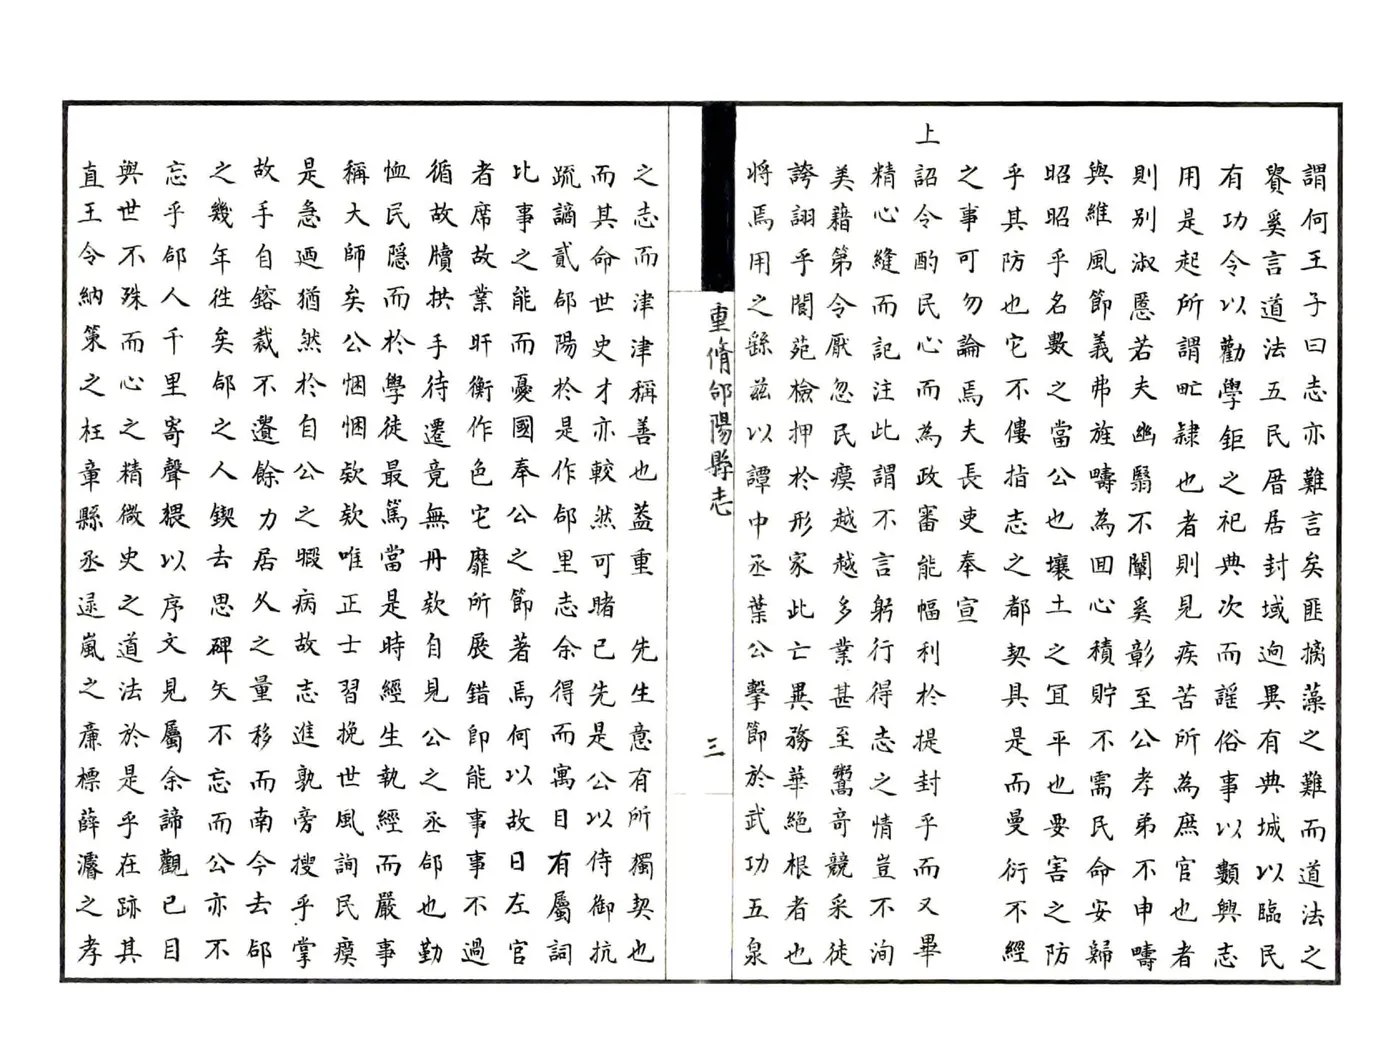 謂何王子曰志亦難言矣匪摛藻之難而道法之
賢奚言道法五民厝居封域逈異有典城以臨民
有功令以勸學鉅之祀典次而謡俗事以顯興志
用是起所謂甿隷也者則見疾苦所為庶官也者
則别淑慝若夫幽翳不闡奚彰至公孝弟不申疇
與維風節義弗旌疇為囬心積貯不需民命安歸
昭昭乎名數之當公也壤土之冝平也要害之防
乎其防也它不僂指志之都契具是而曼衍不經
之事可勿論焉夫長吏奉宣
上
詔令酌民心而為政審能幅利於提封乎而又畢
精心縫而記注此謂不言躬行得志之情豈不洵
美藉第令厭忽民瘼越越多業甚至鬻奇競采徒
誇詡乎閬苑檢押於形家此亡異務華絶根者也
將焉用之繇茲以譚中丞葉公擊節於武功五泉
重脩郃陽縣志
三
之志而津津稱善也蓋重 先生意有所獨契也
而其命世史才亦較然可睹已先是公以侍御抗
疏謫貳郃陽於是作郃里志余得而寓目有屬詞
比事之能而憂國奉公之節著焉何以故日左官
者席故業盱衡作色它靡所展錯卽能事事不過
循故牘拱手待遷竟無冊欵自見公之丞郃也勤
恤民隱而於學徒最篤當是時經生執經而嚴事
稱大師矣公悃悃欵欵唯正士習挽世風詢民瘼
是急迺猶然於自公之暇病故志進孰旁搜乎掌
故手自鎔裁不遺餘力居久之量移而南今去郃
之幾年徃矣郃之人鍥去思碑矢不忘而公亦不
忘乎郃人千里寄聲猥以序文見屬余諦觀已目
與世不殊而心之精微史之道法於是乎在跡其
直王令納策之枉章縣丞逯嵐之亷標薛濬之孝